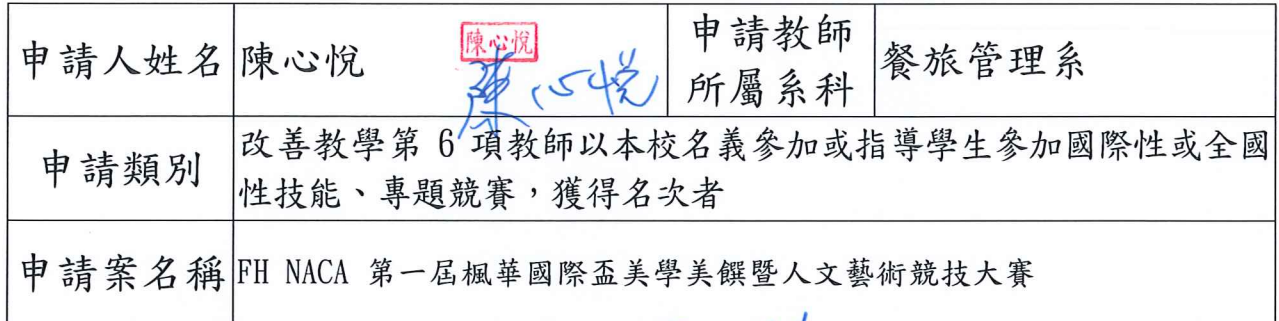 申請人姓名 陳心悅 陳心悅 陳心悅 申請教師所屬系科 餐旅管理系
申請類別 改善教學第 6 項教師以本校名義參加或指導學生參加國際性或全國
性技能、專題競賽，獲得名次者
申請案名稱 FH NACA 第一屆楓華國際盃美學美饌暨人文藝術競技大賽